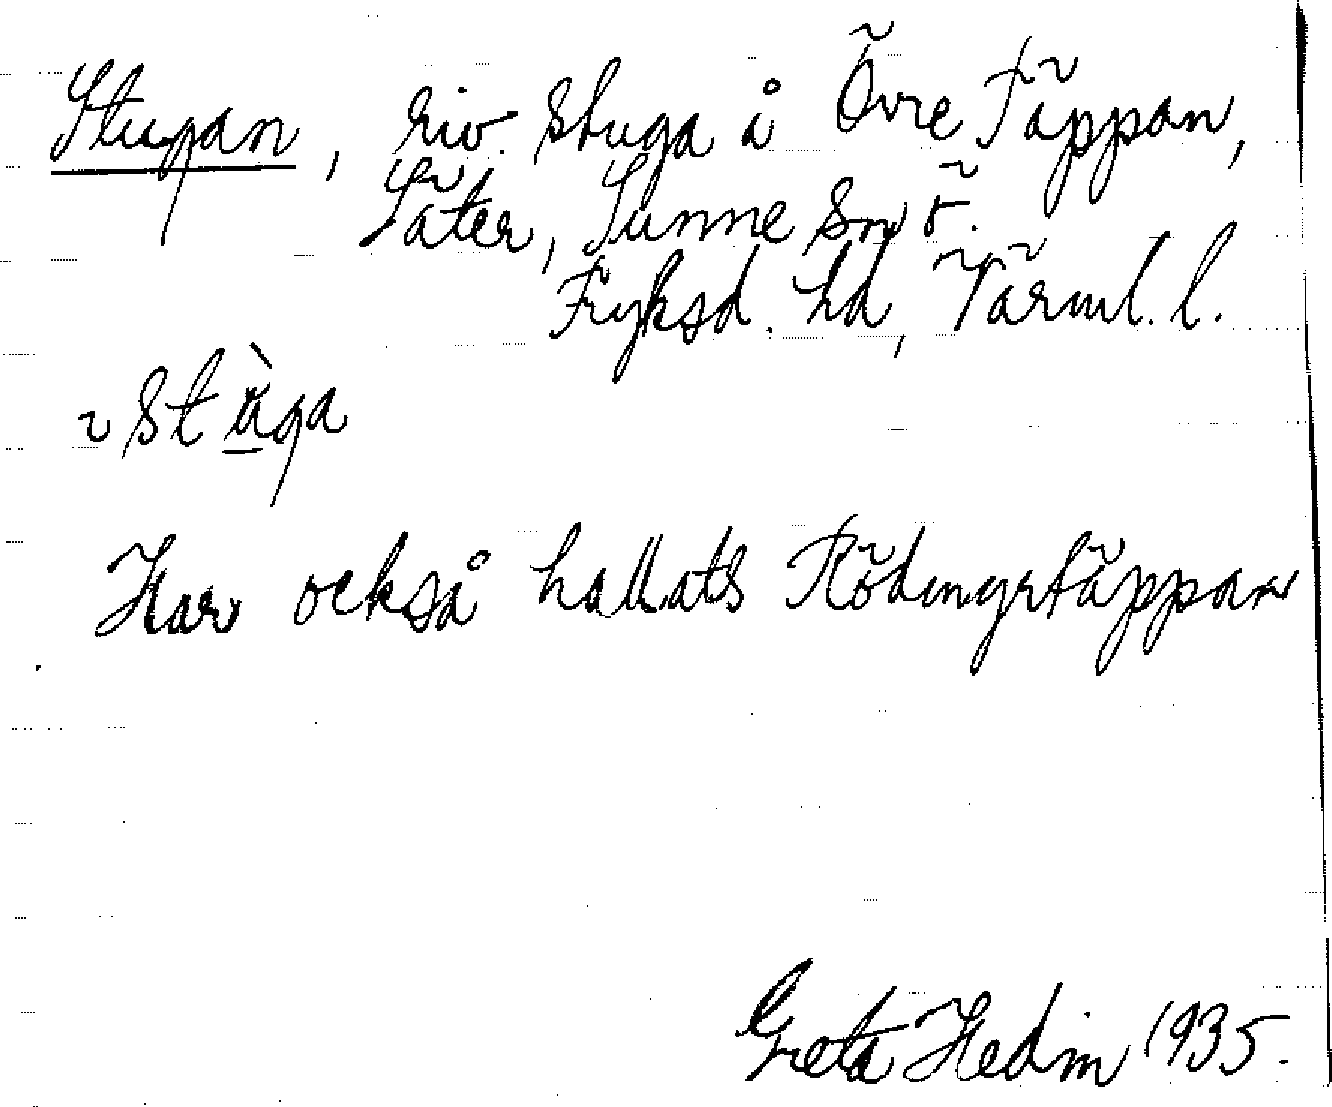 Stugan, riv. stuga å Övre Täppan,
Säter, Sunne sn ö.
Fryksd. hd, Värml. l.
~ st ὰga
Har också kallats Rödmyrtäppan
Greta Hedin 1935.